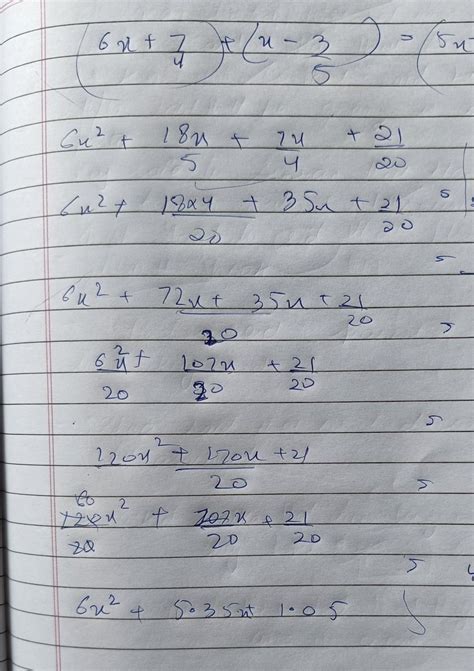 (6x + 7/4) + (x - 3/5) = (5x
6x² + 18x/5 + 7x/4 + 21/20
6x² + 18x4 + 35x/20 + 21/20
6x² + 72x + 35x/20 + 21/20
6x²/20 + 107x/20 + 21/20
120x² + 170x + 21/20
x² + 107x/20 + 21/20
6x² + 5.35x + 1.05